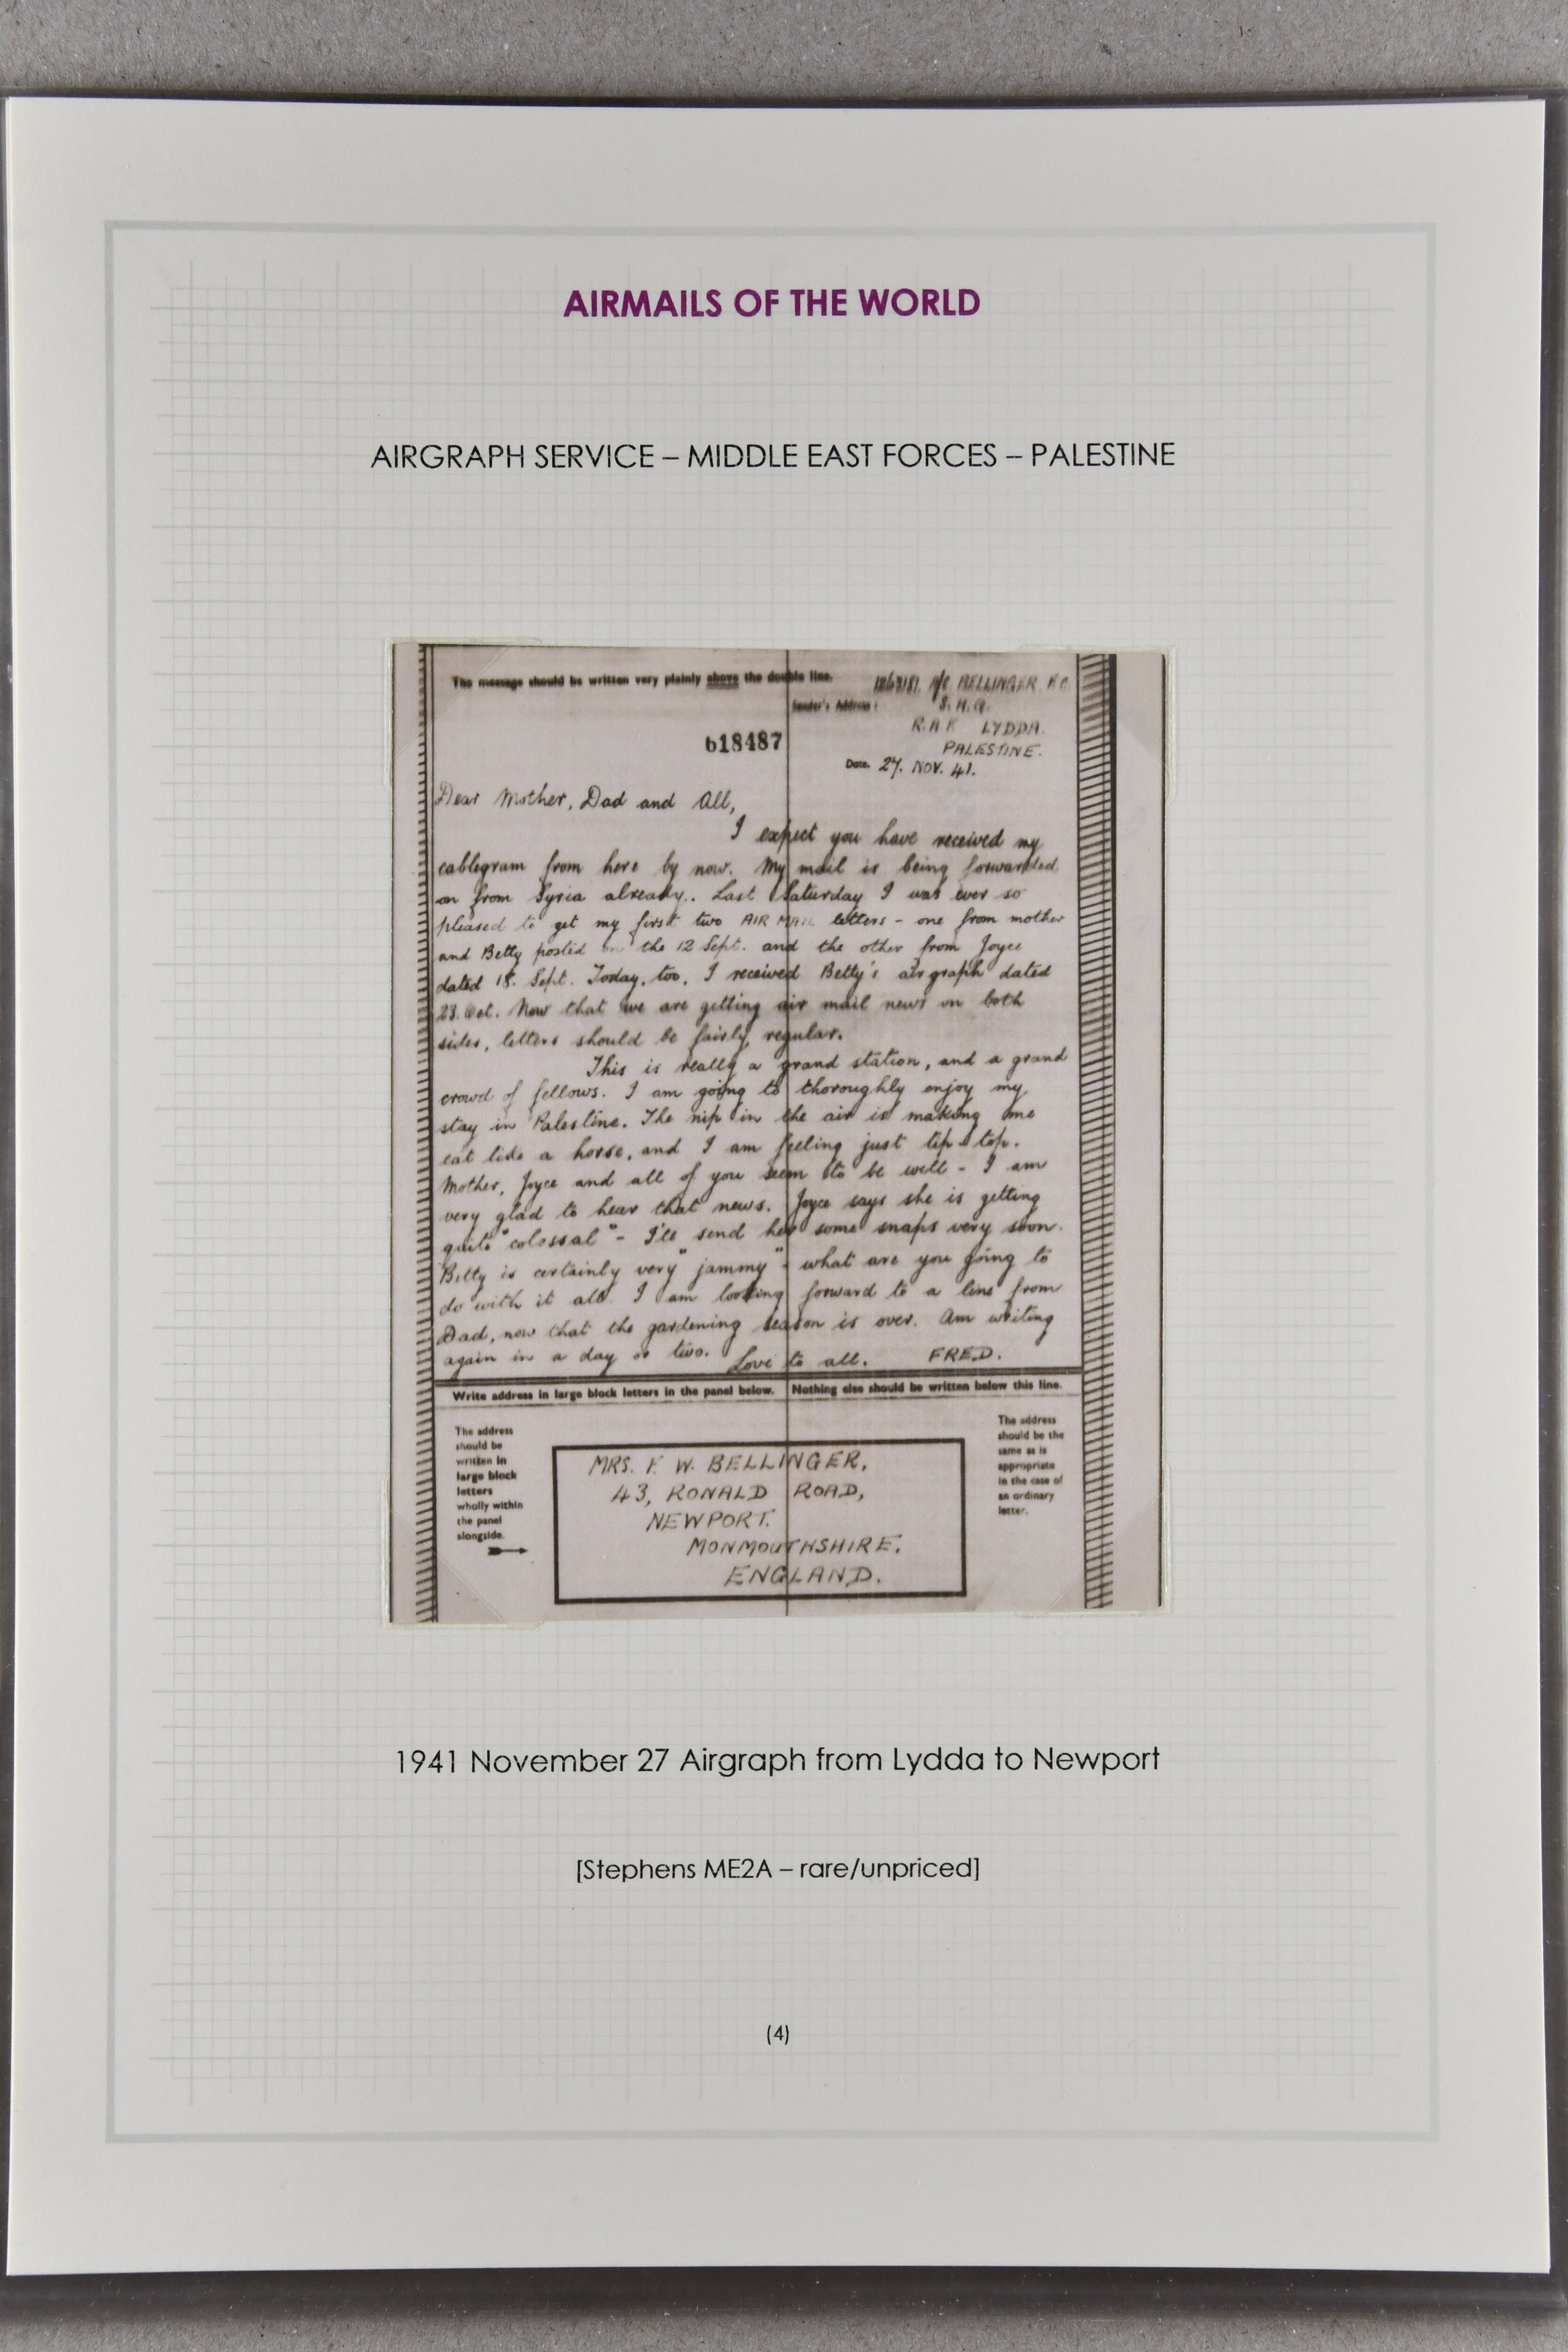 AIRMAILS OF THE WORLD
AIRGRAPH SERVICE – MIDDLE EAST FORCES – PALESTINE
The message should be written very plainly above the double line.
BELLINGER. F.C.
Sender's Address:
S.H.Q.
R.A.F. LYDDA.
618487
PALESTINE.
Date. 27. NOV. 41.
Dear Mother, Dad and All,
I expect you have received my
cablegram from here by now. My mail is being forwarded
on from Syria already.. Last Saturday I was ever so
pleased to get my first two AIR MAIL letters - one from mother
and Betty posted on the 12 Sept. and the other from Joyce
dated 18. Sept. Today, too, I received Betty's airgraph dated
23. Oct. Now that we are getting air mail news on both
sides, letters should be fairly regular.
This is really a grand station, and a grand
crowd of fellows. I am going to thoroughly enjoy my
stay in Palestine. The nip in the air is making me
eat like a horse, and I am feeling just tip top.
Mother, Joyce and all of you seem to be well - I am
very glad to hear that news. Joyce says she is getting
quite "colossal" - I'll send her some snaps very soon.
Betty is certainly very "jammy" - what are you going to
do with it all. I am looking forward to a line from
Dad, now that the gardening season is over. Am writing
again in a day or two. Love to all. FRED.
Write address in large block letters in the panel below. Nothing else should be written below this line.
The address
should be
written in
large block
letters
wholly within
the panel
alongside.
MRS. F. W. BELLINGER,
43, RONALD ROAD,
NEWPORT.
MONMOUTHSHIRE.
ENGLAND.
The address
should be the
same as is
appropriate
in the case of
an ordinary
letter.
1941 November 27 Airgraph from Lydda to Newport
[Stephens ME2A – rare/unpriced]
(4)